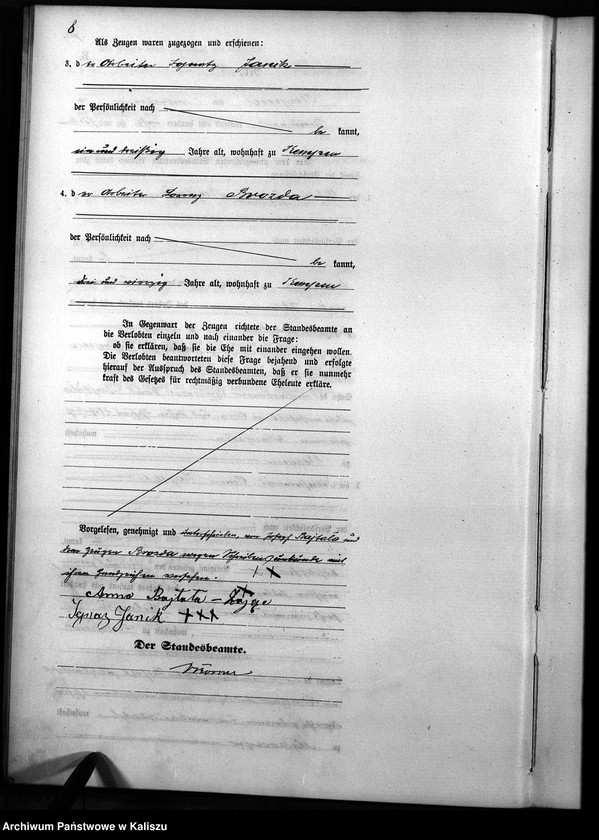 8
Als Zeugen waren zugezogen und erschienen:
3. der Arbeiter Ignatz Janik
der Persönlichkeit nach
be kannt,
ein und dreißig Jahre alt, wohnhaft zu Kempen
4. der Arbeiter Lorenz Brozda
der Persönlichkeit nach
be kannt,
drei und vierzig Jahre alt, wohnhaft zu Kempen
In Gegenwart der Zeugen richtete der Standesbeamte an
die Verlobten einzeln und nach einander die Frage:
ob sie erklären, daß sie die Ehe mit einander eingehen wollen.
Die Verlobten beantworteten diese Frage bejahend und erfolgte
hierauf der Ausspruch des Standesbeamten, daß er sie nunmehr
kraft des Gesetzes für rechtmäßig verbundene Eheleute erkläre.
Vorgelesen, genehmigt und unterschrieben, von Joseph Bajtala und
dem Zeugen Brozda wegen Schreibensunkunde mit
ihren Handzeichen versehen.
Anna Bajtala
Ignaz Janik +++
Der Standesbeamte.
Archiwum Państwowe w Kaliszu